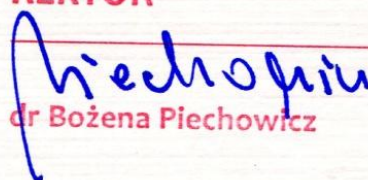 REKTOR
Piechowicz
dr Bożena Piechowicz